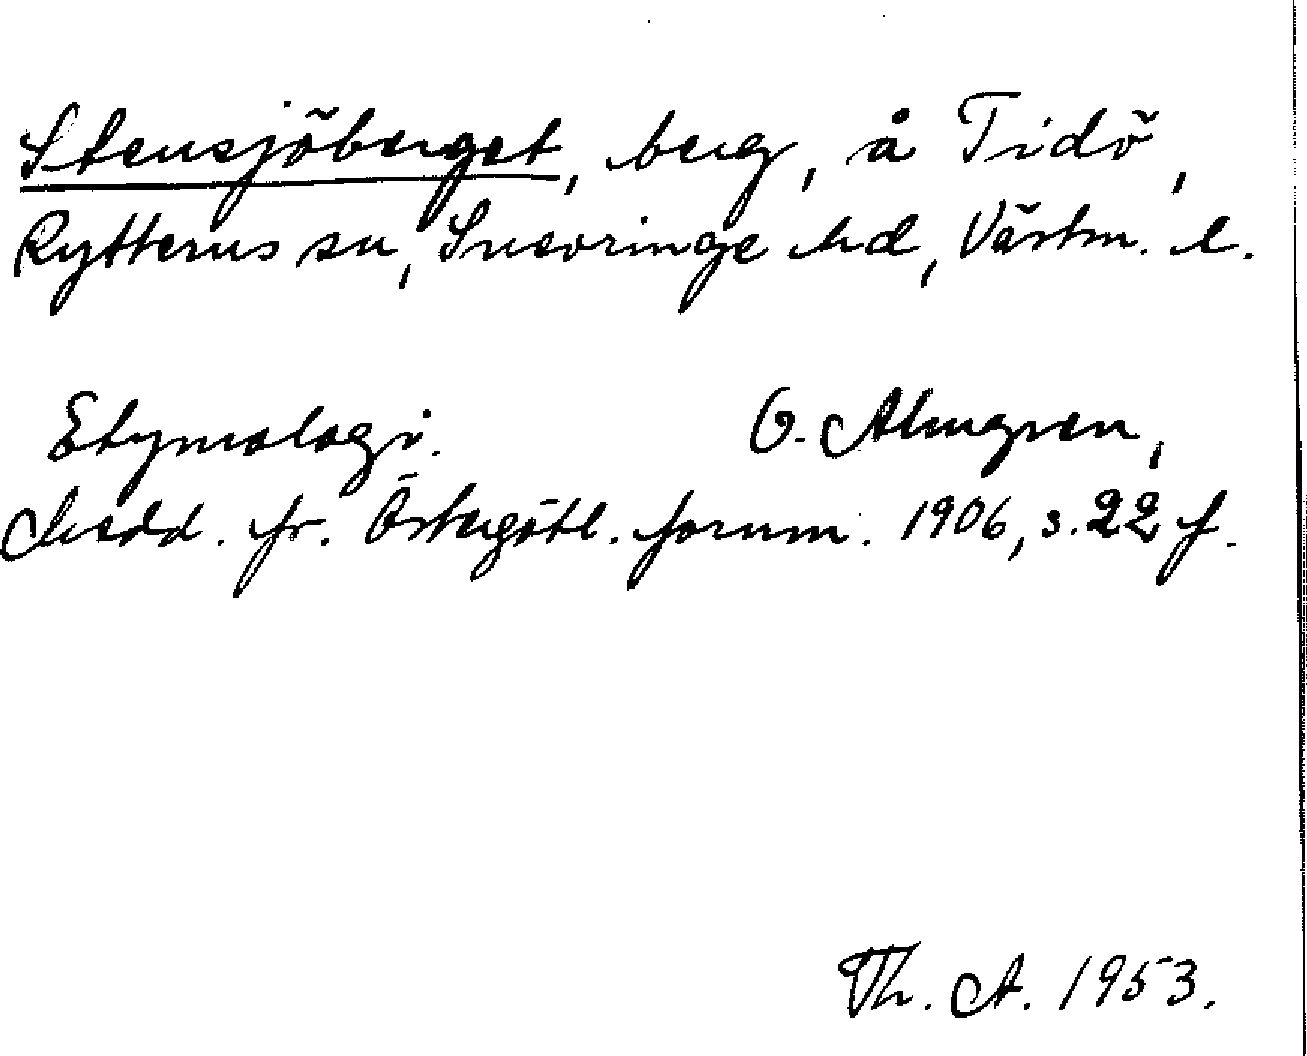 Stensjöberget, berg, å Tidö,
Rytterns sn, Snevringe hd, Västm. l.
Etymologi. O. Almgren,
Medd. fr. Östergötl. fornm. 1906, s. 22 f.
Th. A. 1953.